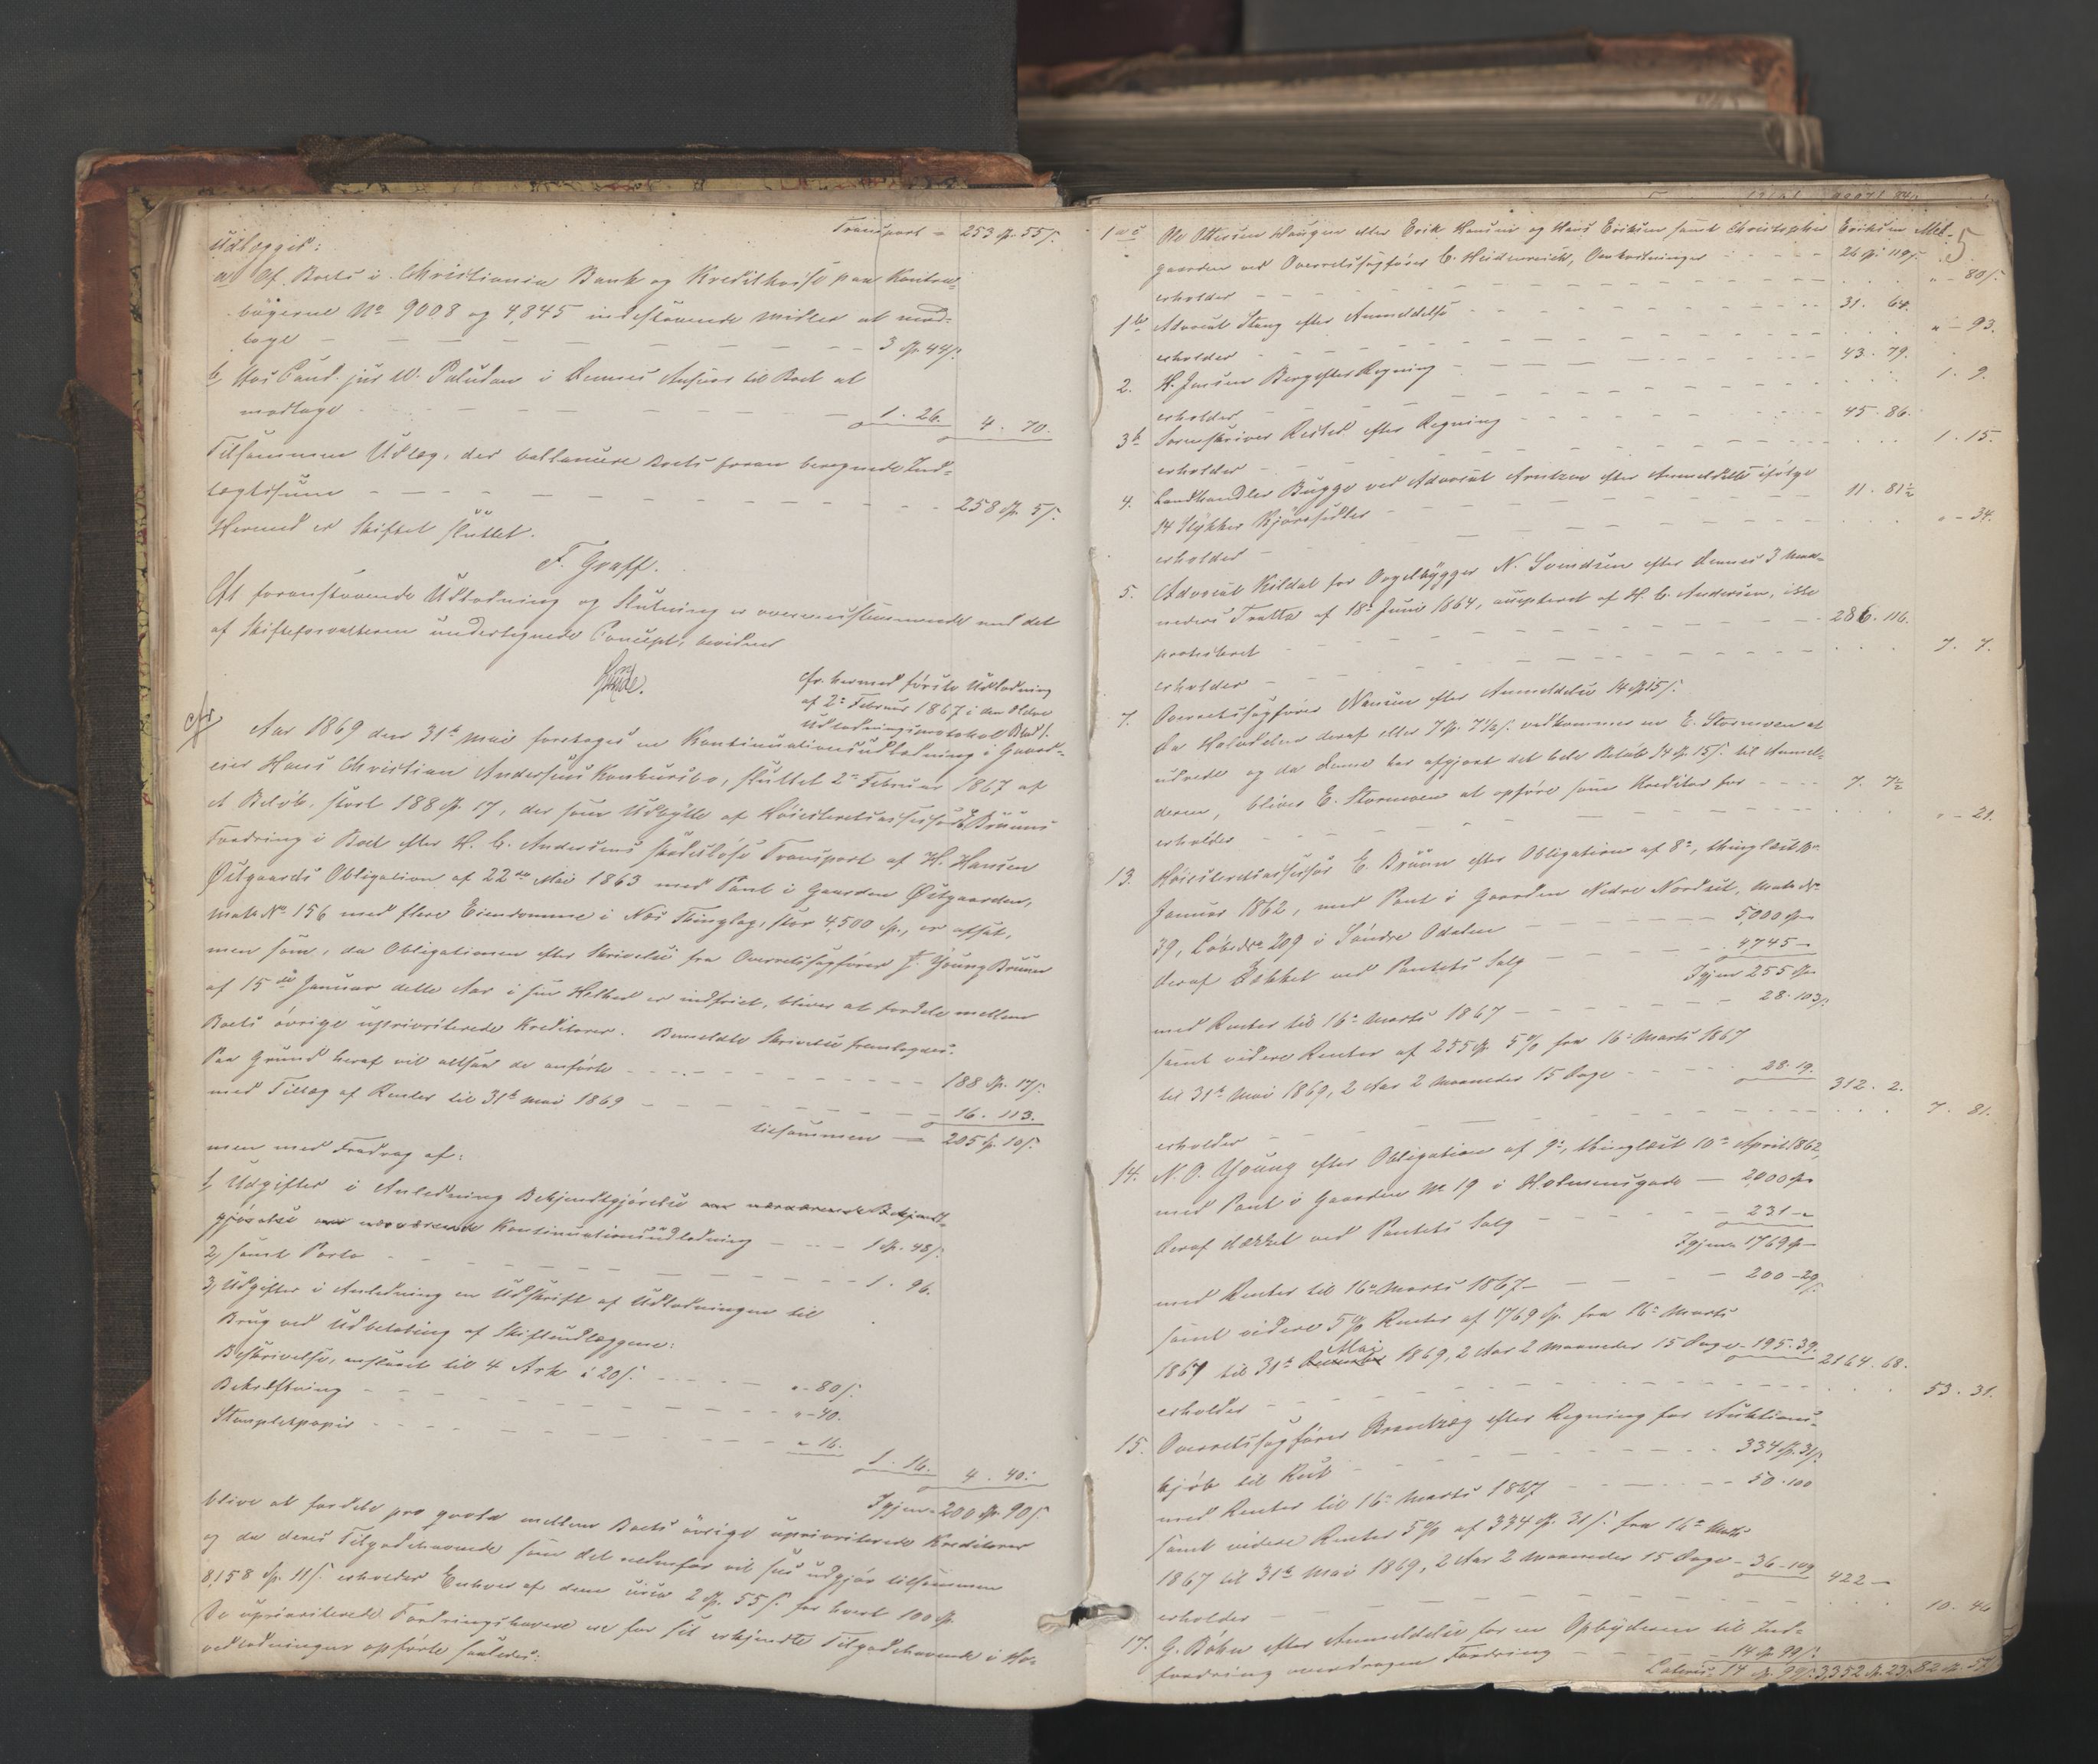 Transport = 253 Sp. 55 s.
Udlægges:
a) Af Boets i Christiania Bank og Kreditkasse paa Kontra-
bøgerne No 9008 og 4,845 indestaaende Midler at mod-
tage — — — 3 Sp. 44 s.
b, Hos Cand. jur. W. Paludan i dennes Ansvar til Boet at
modtage — — — 1. 26. 4. 70.
Tilsammen Udlæg, der ballancere Boets foran beregnede Ind-
tægtssum — — — 258 Sp. 5 s.
Hermed er Skiftet sluttet.
F. Graff.
At foranstaaende Udlodning og Slutning er overensstemmende med det
af Skifteforvalteren undertegnede Concept, bevidner
cfr. hermed første Udlodning
af 2den Februar 1867 i den ældre
Udlodningsprotokol Blad 1.
cfr
Aar 1869 den 31te Mai foretages en Kontinuationsudlodning i Gaard-
eier Hans Christian Andersens Konkursbo, sluttet 2den Februar 1867 af
et Beløb, stort 188 Sp. 17, der som Udbytte af Høiesteretsassessor E. Bruuns
Fordring i Boet efter H. C. Andersens skadesløse Transport af H. Hansen
Østgaards Obligation af 22de Mai 1863 med Pant i Gaarden Østgaarden,
Matr. No 156 med flere Eiendomme i Næs Thinglag, stor 4,500 Sp., er afsat,
men som, da Obligationen efter Skrivelse fra Overretssagfører J. Young Bruun
af 15de Januar dette Aar i sin Helhed er indfriet, bliver at fordele mellem
Boets øvrige uprioriterede Kreditorer. Bemeldte Skrivelse fremlægges.
Paa Grund heraf vil altsaa de anførte — — — 188 Sp. 17 s.
med Tillæg af Renter til 31te Mai 1869 — — — 16. 113.
tilsammen — 205 Sp. 10 s.
men med Fradrag af:
1, Udgifter i Anledning Bekjendtgjørelse om nærværende Bekjendt-
gjørelse om nærværende Kontinuationsudlodning — — — 1 Sp. 48 s.
2, samt Porto — — — 1. 96.
3, Udgifter i Anledning en Udskrift af Udlodningen til
Brug ved Udbetaling af Skifteudlæggene:
Beskrivelse, anslaaet til 4 Ark à 20 s. — — — " - 80 s.
Bekræftning — — — " - 40.
Stempletpapir — — — " 16.
1. 16. 4. 40.
Igjen = 200 Sp. 90 s.
blive at fordele pro qvota mellem Boets øvrige uprioriterede Kreditorer
og da deres Tilgodehavende som det nedenfor vil sees udgjør tilsammen
8,158 Sp. 11 s. erholder Enhver af dem circa 2 Sp. 55 s. for hvert 100 Sp.
De uprioriterede Fordringshavere ere for sit erkjendte Tilgodehavende i Ho-
vedlodningen opførte saaledes:
5
Ole Ottersen Haugen eller Erik Hansen og Hans Eriksen samt Christopher Eriksen
gaarden ved Overretssagfører C. Heidenreich, Omkostninger — — 26 Sp. 119 s.
erholder — — — " - 80 s.
Advocat Stang efter Anmeldelse — — — 31. 64.
erholder — — — " - 93.
2. H. Jensen Berg efter Regning — — — 43. 79.
erholder — — — 1. 9.
3. Sorenskriver efter Regning — — — 45. 86.
erholder — — — 1. 15.
4. Landhandler Bugge ved Advocat Arntzen efter Anmeldelse ifølge
14 Stykker Kjøresedler — — — 11. 81½
erholder — — — " - 34.
5. Advocat Kildal for Orgelbygger N. Svendsen efter dennes 3 Maa-
neders Tratte af 18de Juni 1864, accepteret af H. C. Andersen, ikke
protesteret — — — 286. 116.
erholder — — — 7. 7.
7. Overretssagfører Nansen efter Anmeldelse 14 Sp. 15 s.
Da Halvdelen deraf eller 7 Sp. 7½ s. vedkommer en E. Stormoen at
udrede og da denne har afgjort det hele Beløb 14 Sp. 15 s. til Anmel-
deren, bliver E. Stormoen at opføre som Kreditor for — — — 7. 7½
erholder — — — " - 21.
13. Høiesteretsassessor E. Bruun efter Obligation af 8de, thinglæst
Januar 1862, med Pant i Gaarden Nedre Nordset, Matr. No
39, Løbe No 209 i Søndre Odalen — — — 5,000 Sp.
deraf dækket ved Pantets Salg — — — 4,745 —
Igjen 255 Sp.
med Renter til 16de Marts 1867 — — — 28. 103 s.
samt videre Renter af 255 Sp. 5 % fra 16de Marts 1867
til 31te Mai 1869, 2 Aar 2 Maaneder 15 Dage — — — 28. 19. 312. 2.
erholder — — — 7. 81.
14. N. O. Young efter Obligation af 9de, thinglæst 10de April 1862,
med Pant i Gaarden No 19 i Holmensgade — 2,000 Sp.
deraf dækket ved Pantets Salg — — — 231 - "
Igjen 1769 Sp —
med Renter til 16de Marts 1867 — — — 200 - 29 s.
samt videre 5 % Renter af 1769 Sp. fra 16de Marts
Mai
1867 til 31te December 1869, 2 Aar 2 Maaneder 15 Dage - 195. 39. 2164. 68.
erholder — — — 53. 31.
15. Overretssagfører efter Regning for Auktions-
kjøb til Rest — — — 334 Sp. 31 s.
med Renter til 16de Marts 1867 — — — 50. 100
samt videre Renter 5 % af 334 Sp. 31 s. fra 16de Marts
1867 til 31te Mai 1869, 2 Aar 2 Maaneder 15 Dage - 36 - 109 422 —
erholder — — — 10. 46
17. G. Bøhn efter Anmeldelse for en Opbyderen til Ind-
fordring overdragen Fordring — — — 14 Sp. 99 s.
Lateris 14 Sp. 99 s. 3,352 Sp. 23 s. 82 Sp. 57